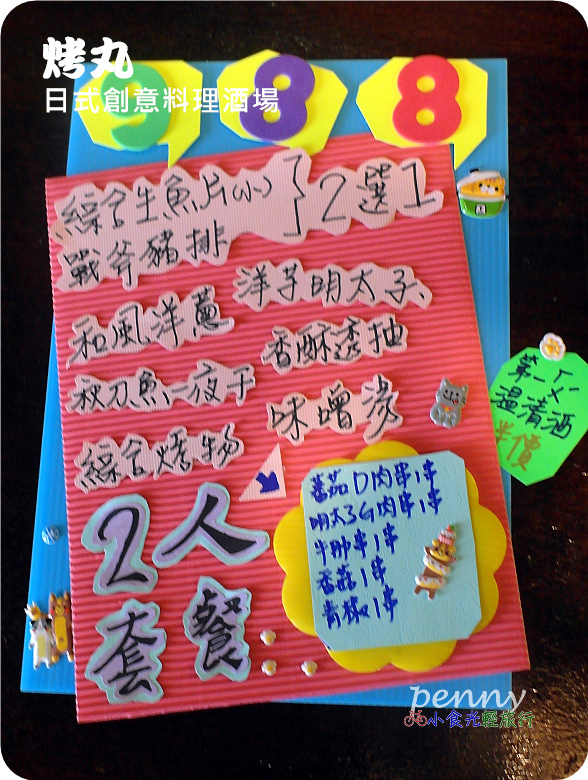 烤丸
日式創意料理酒場
988
綜合生魚片(小)
戰斧豬排
}2選1
和風洋蔥
洋芋明太子、
秋刀魚一夜干
香酥透抽
綜合烤物
味噌湯
2人
套餐
番茄D肉串1串
明太子G肉串1串
牛肋串1串
香菇1串
青椒1串
第二丁
溫清酒
半價
penny
小食光輕旅行